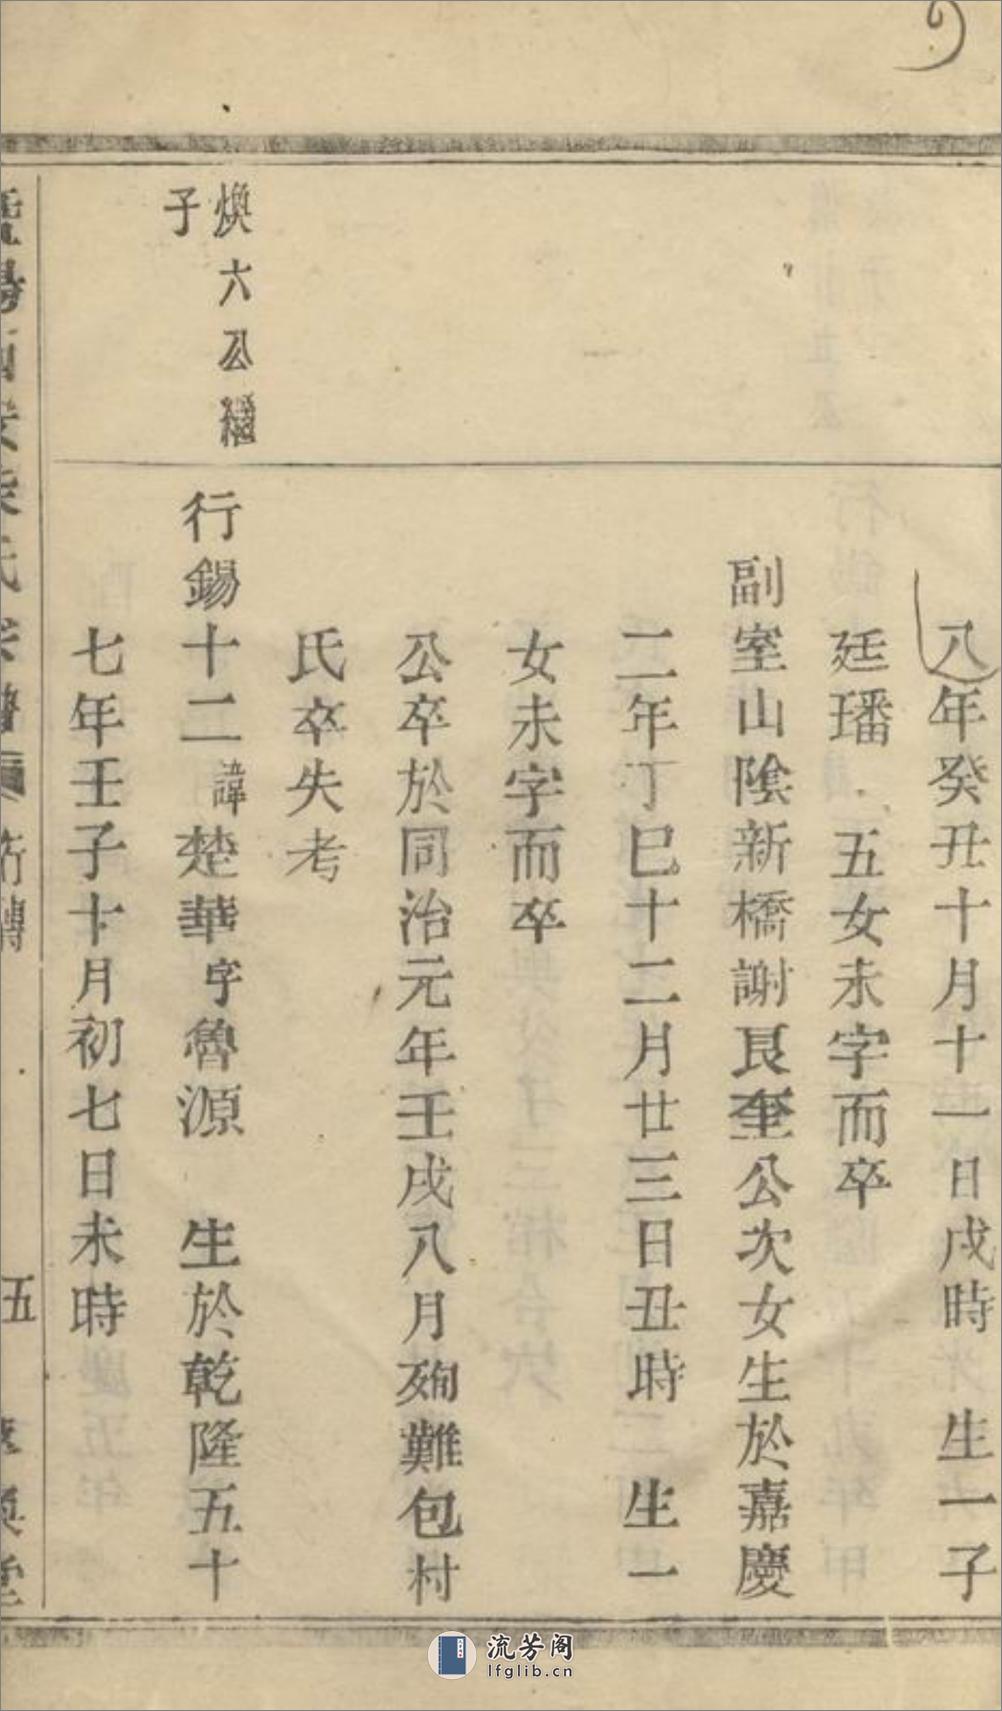 八年癸丑十月十一日戌時 生一子
廷璠 五女未字而卒
副室山陰新橋謝艮奎公次女生於嘉慶
二年丁巳十二月廿三日丑時 生一
女未字而卒
公卒於同治元年壬戌八月殉難包村
氏卒失考
煥六公繼
子
行錫十二諱楚華字魯源 生於乾隆五十
七年壬子十月初七日未時
氏宗譜 行傳 五 堂
流芳阁
lfglib.cn